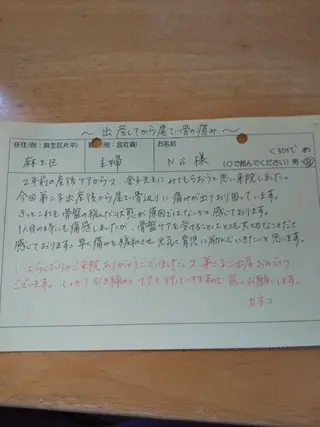 〜 出産してから尾てい骨の痛み 〜
在住(例：麻生区片平) 職業(例：会社員) お名前 く30代〉
麻生区 主婦 N・S 様 (○で囲んでください) 男・女
2年前の産後ケアから又、金子先生にみてもらおうと思い来院しました。
今回第二子出産後から尾てい骨辺りに痛みが出ており困っています。
きっとこれも骨盤の歪んだ状態が原因ではないかと感じております。
1人目の時にも痛感しましたが、骨盤ケアを受けることはとても大切なことだと
感じております。早く痛みを緩和させ、元気に育児に励んでいきたいと思います。
いらしてのご来院ありがとうございました。又 第二子ご出産おめでとう
ございます。しっかり引き締めとケアを行っていきますので宜しくお願いします。
カネコ